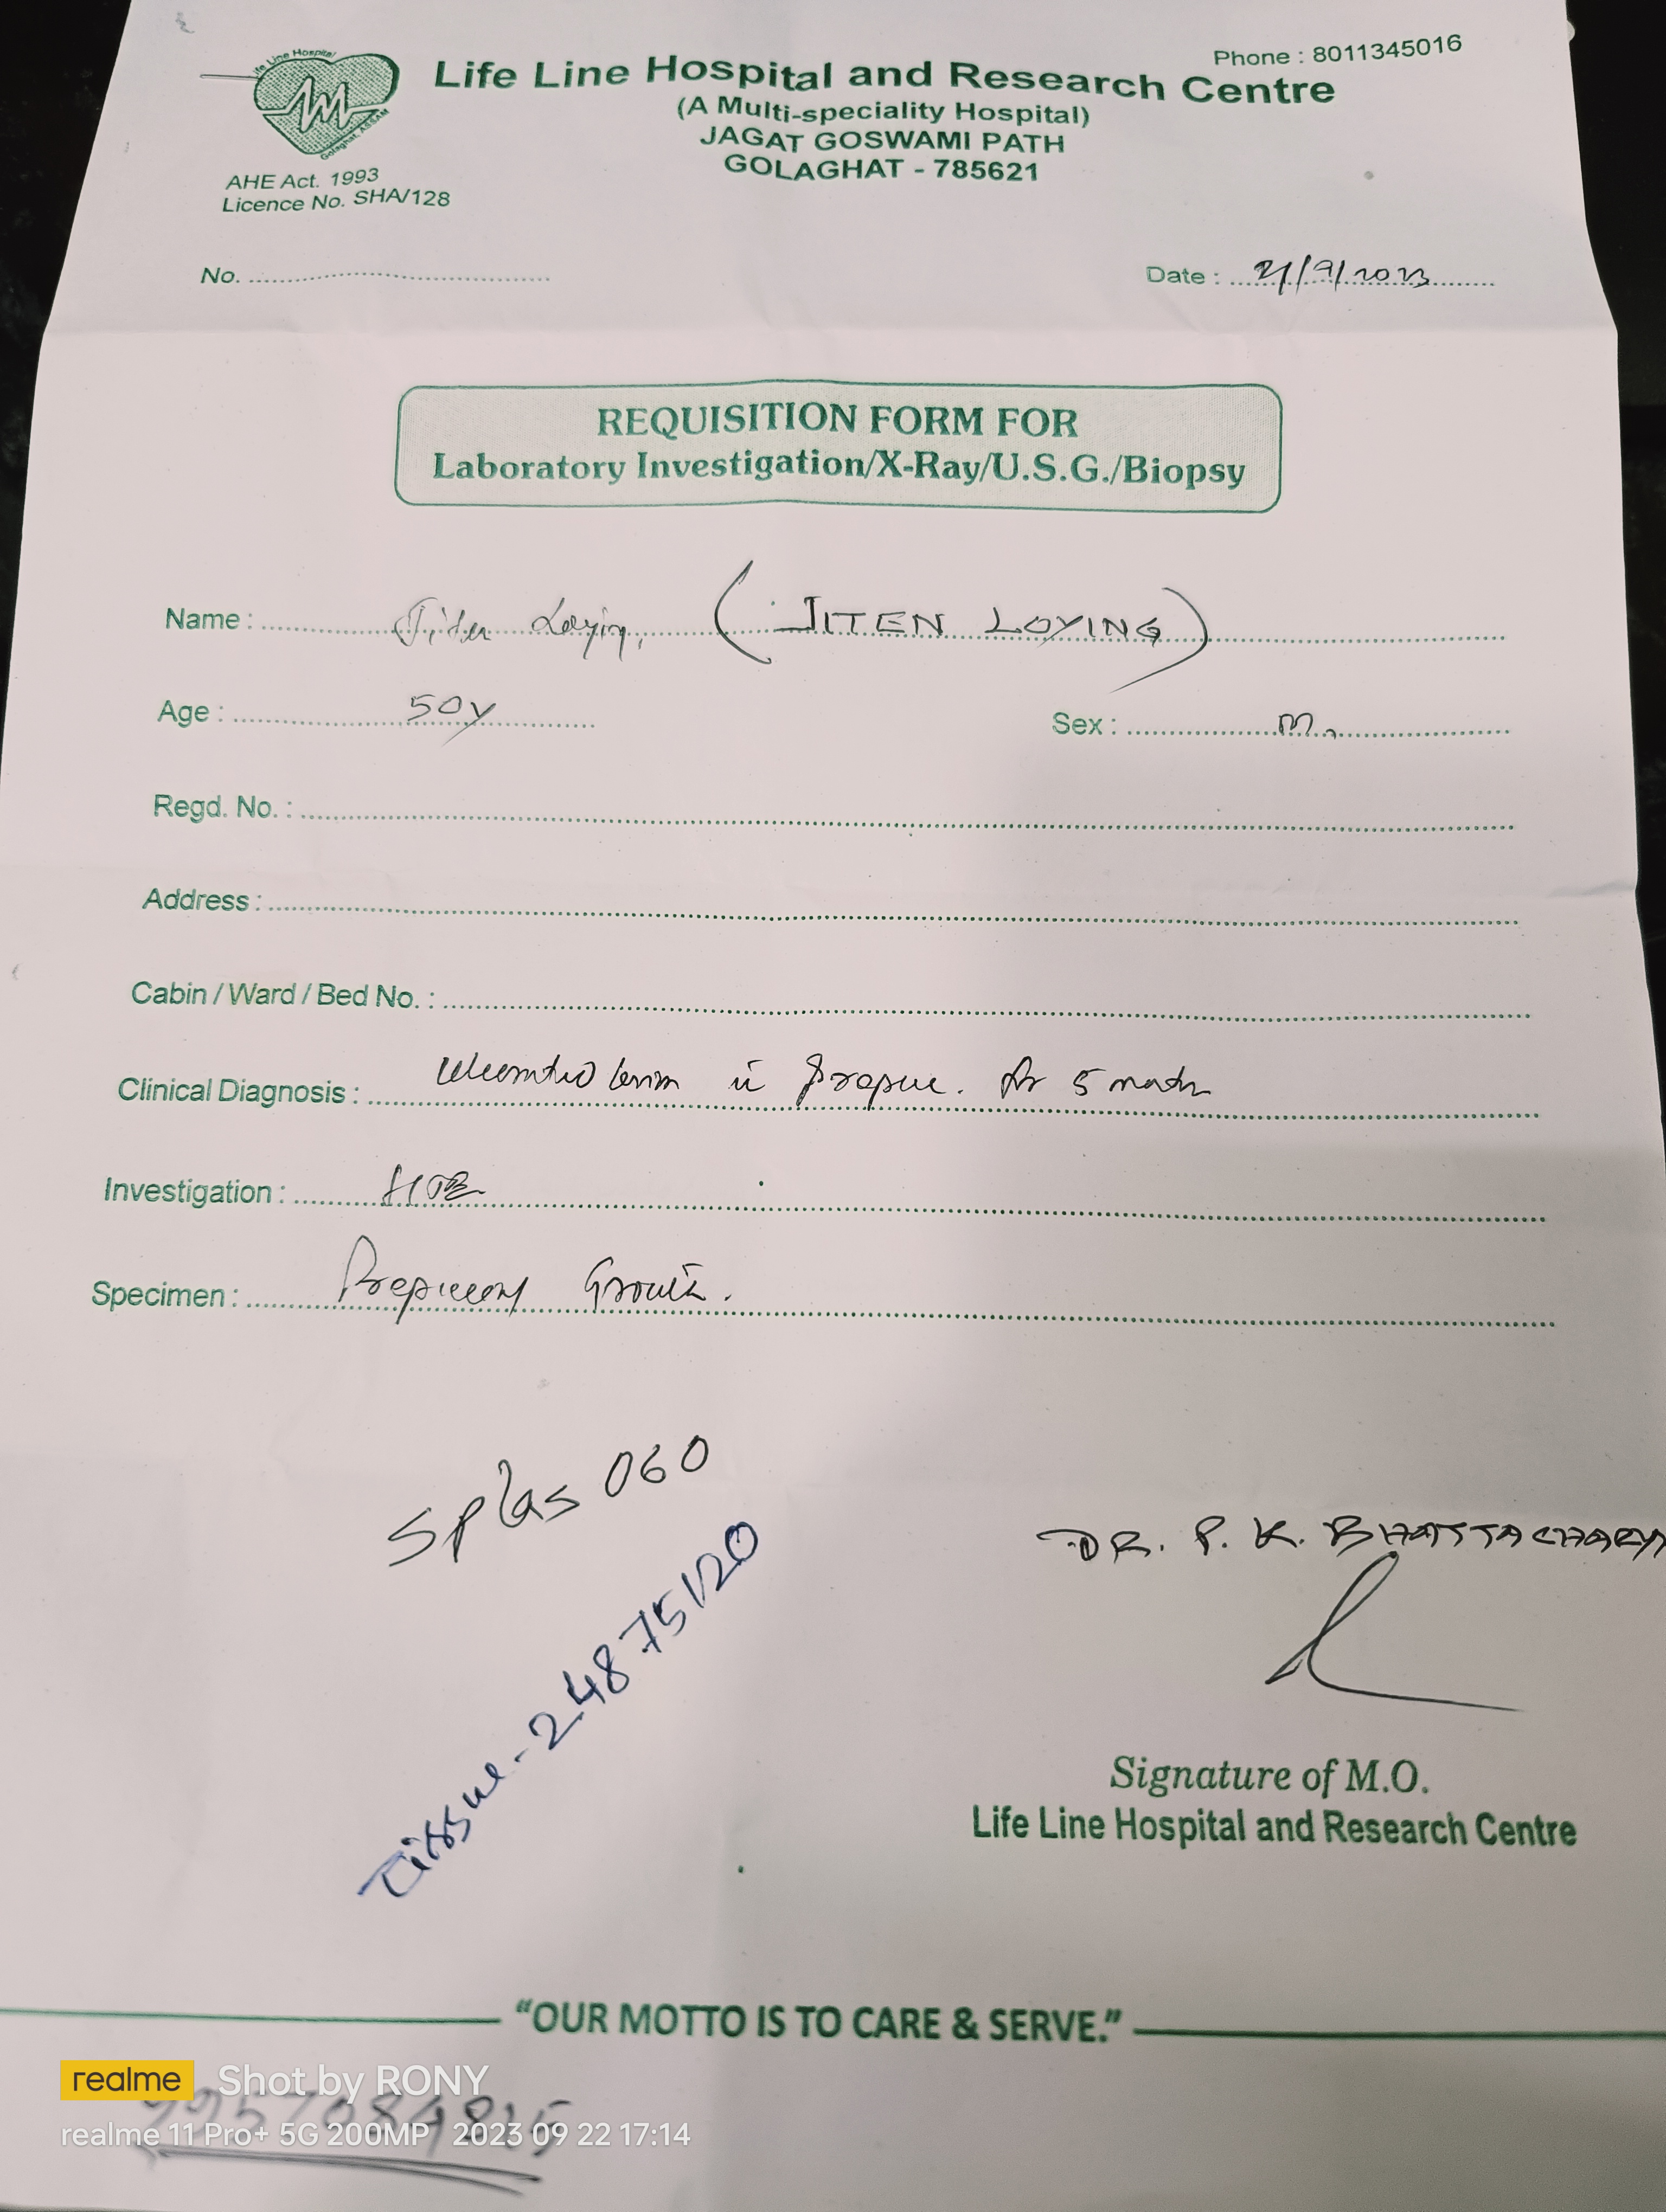 Life Line Hospital
Golaghat, ASSAM
Phone : 8011345016
Life Line Hospital and Research Centre
(A Multi-speciality Hospital)
JAGAT GOSWAMI PATH
GOLAGHAT - 785621
AHE Act. 1993
Licence No. SHA/128
No.
Date : 21/9/2023
REQUISITION FORM FOR
Laboratory Investigation/X-Ray/U.S.G./Biopsy
Name : Jiten Loying, (JITEN LOYING)
Age : 50y Sex : M.
Regd. No. :
Address :
Cabin / Ward / Bed No. :
Clinical Diagnosis : in prepuce. for 5 months
Investigation : HPE
Specimen : Growth.
Splas 060
DR. P. K. BHATTACHARYA
Tissue - 248751/20
Signature of M.O.
Life Line Hospital and Research Centre
“OUR MOTTO IS TO CARE & SERVE.”
realme Shot by RONY
realme 11 Pro+ 5G 200MP 2023 09 22 17:14